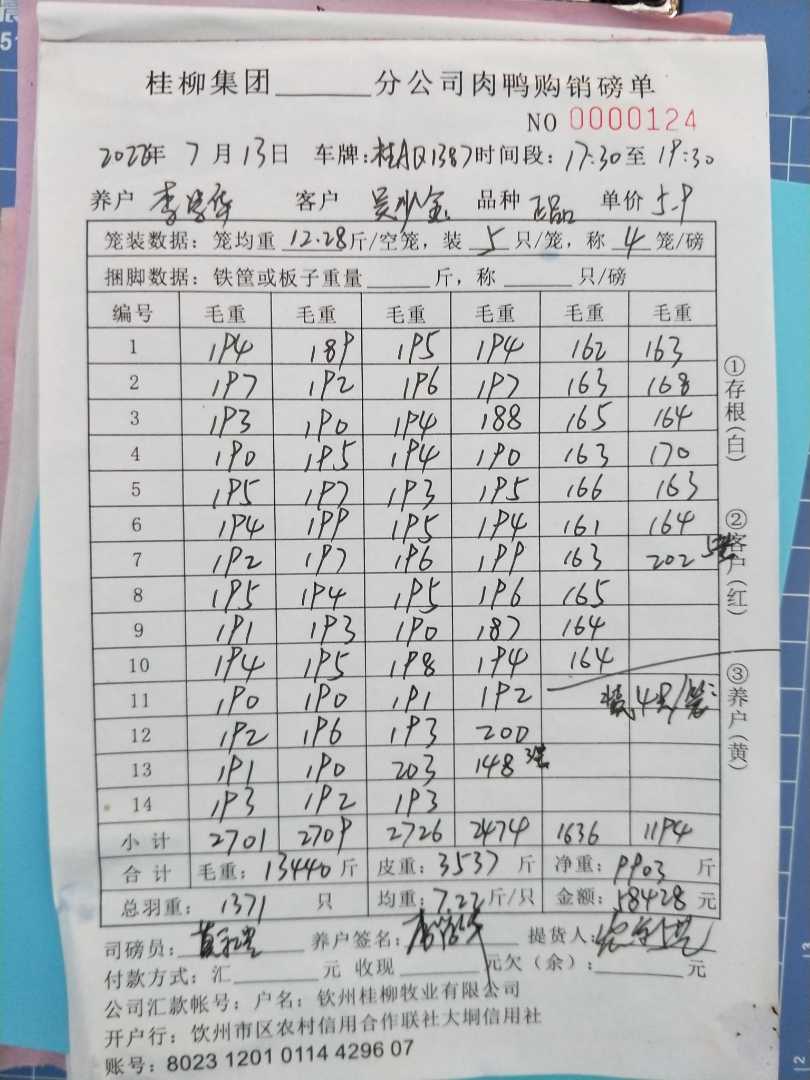 桂柳集团______分公司肉鸭购销磅单
NO 0000124
2022年 7月13日 车牌:桂AQ1387 时间段:17:30至19:30
养户 客户 品种 正品 单价 5.9
笼装数据:笼均重 12.28斤/空笼,装 5 只/笼,称 4 笼/磅
捆脚数据:铁筐或板子重量______斤,称______只/磅
编号 毛重 毛重 毛重 毛重 毛重 毛重
1 194 189 195 194 162 163
2 197 192 196 197 163 168
3 193 190 194 188 165 164
4 190 195 194 190 163 170
5 195 197 193 195 166 163
6 194 199 195 194 161 164
7 192 197 196 199 163 202 5笼
8 195 194 195 196 165
9 191 193 190 187 164
10 194 195 198 194 164
11 190 190 191 192 装4只/笼
12 192 196 193 200
13 191 190 203 148 3笼
14 193 192 193
小计 2701 2709 2726 2474 1636 1194
合计 毛重:13440斤 皮重:3537斤 净重:9903斤
总羽重:1371 只 均重:7.22斤/只 金额:58428元
司磅员: 养户签名: 提货人:
付款方式:汇______元 收现______元欠(余):______元
公司汇款帐号:户名:钦州桂柳牧业有限公司
开户行:钦州市区农村信用合作联社大垌信用社
账号:8023 1201 0114 4296 07
①存根(白)
②客户(红)
③养户(黄)